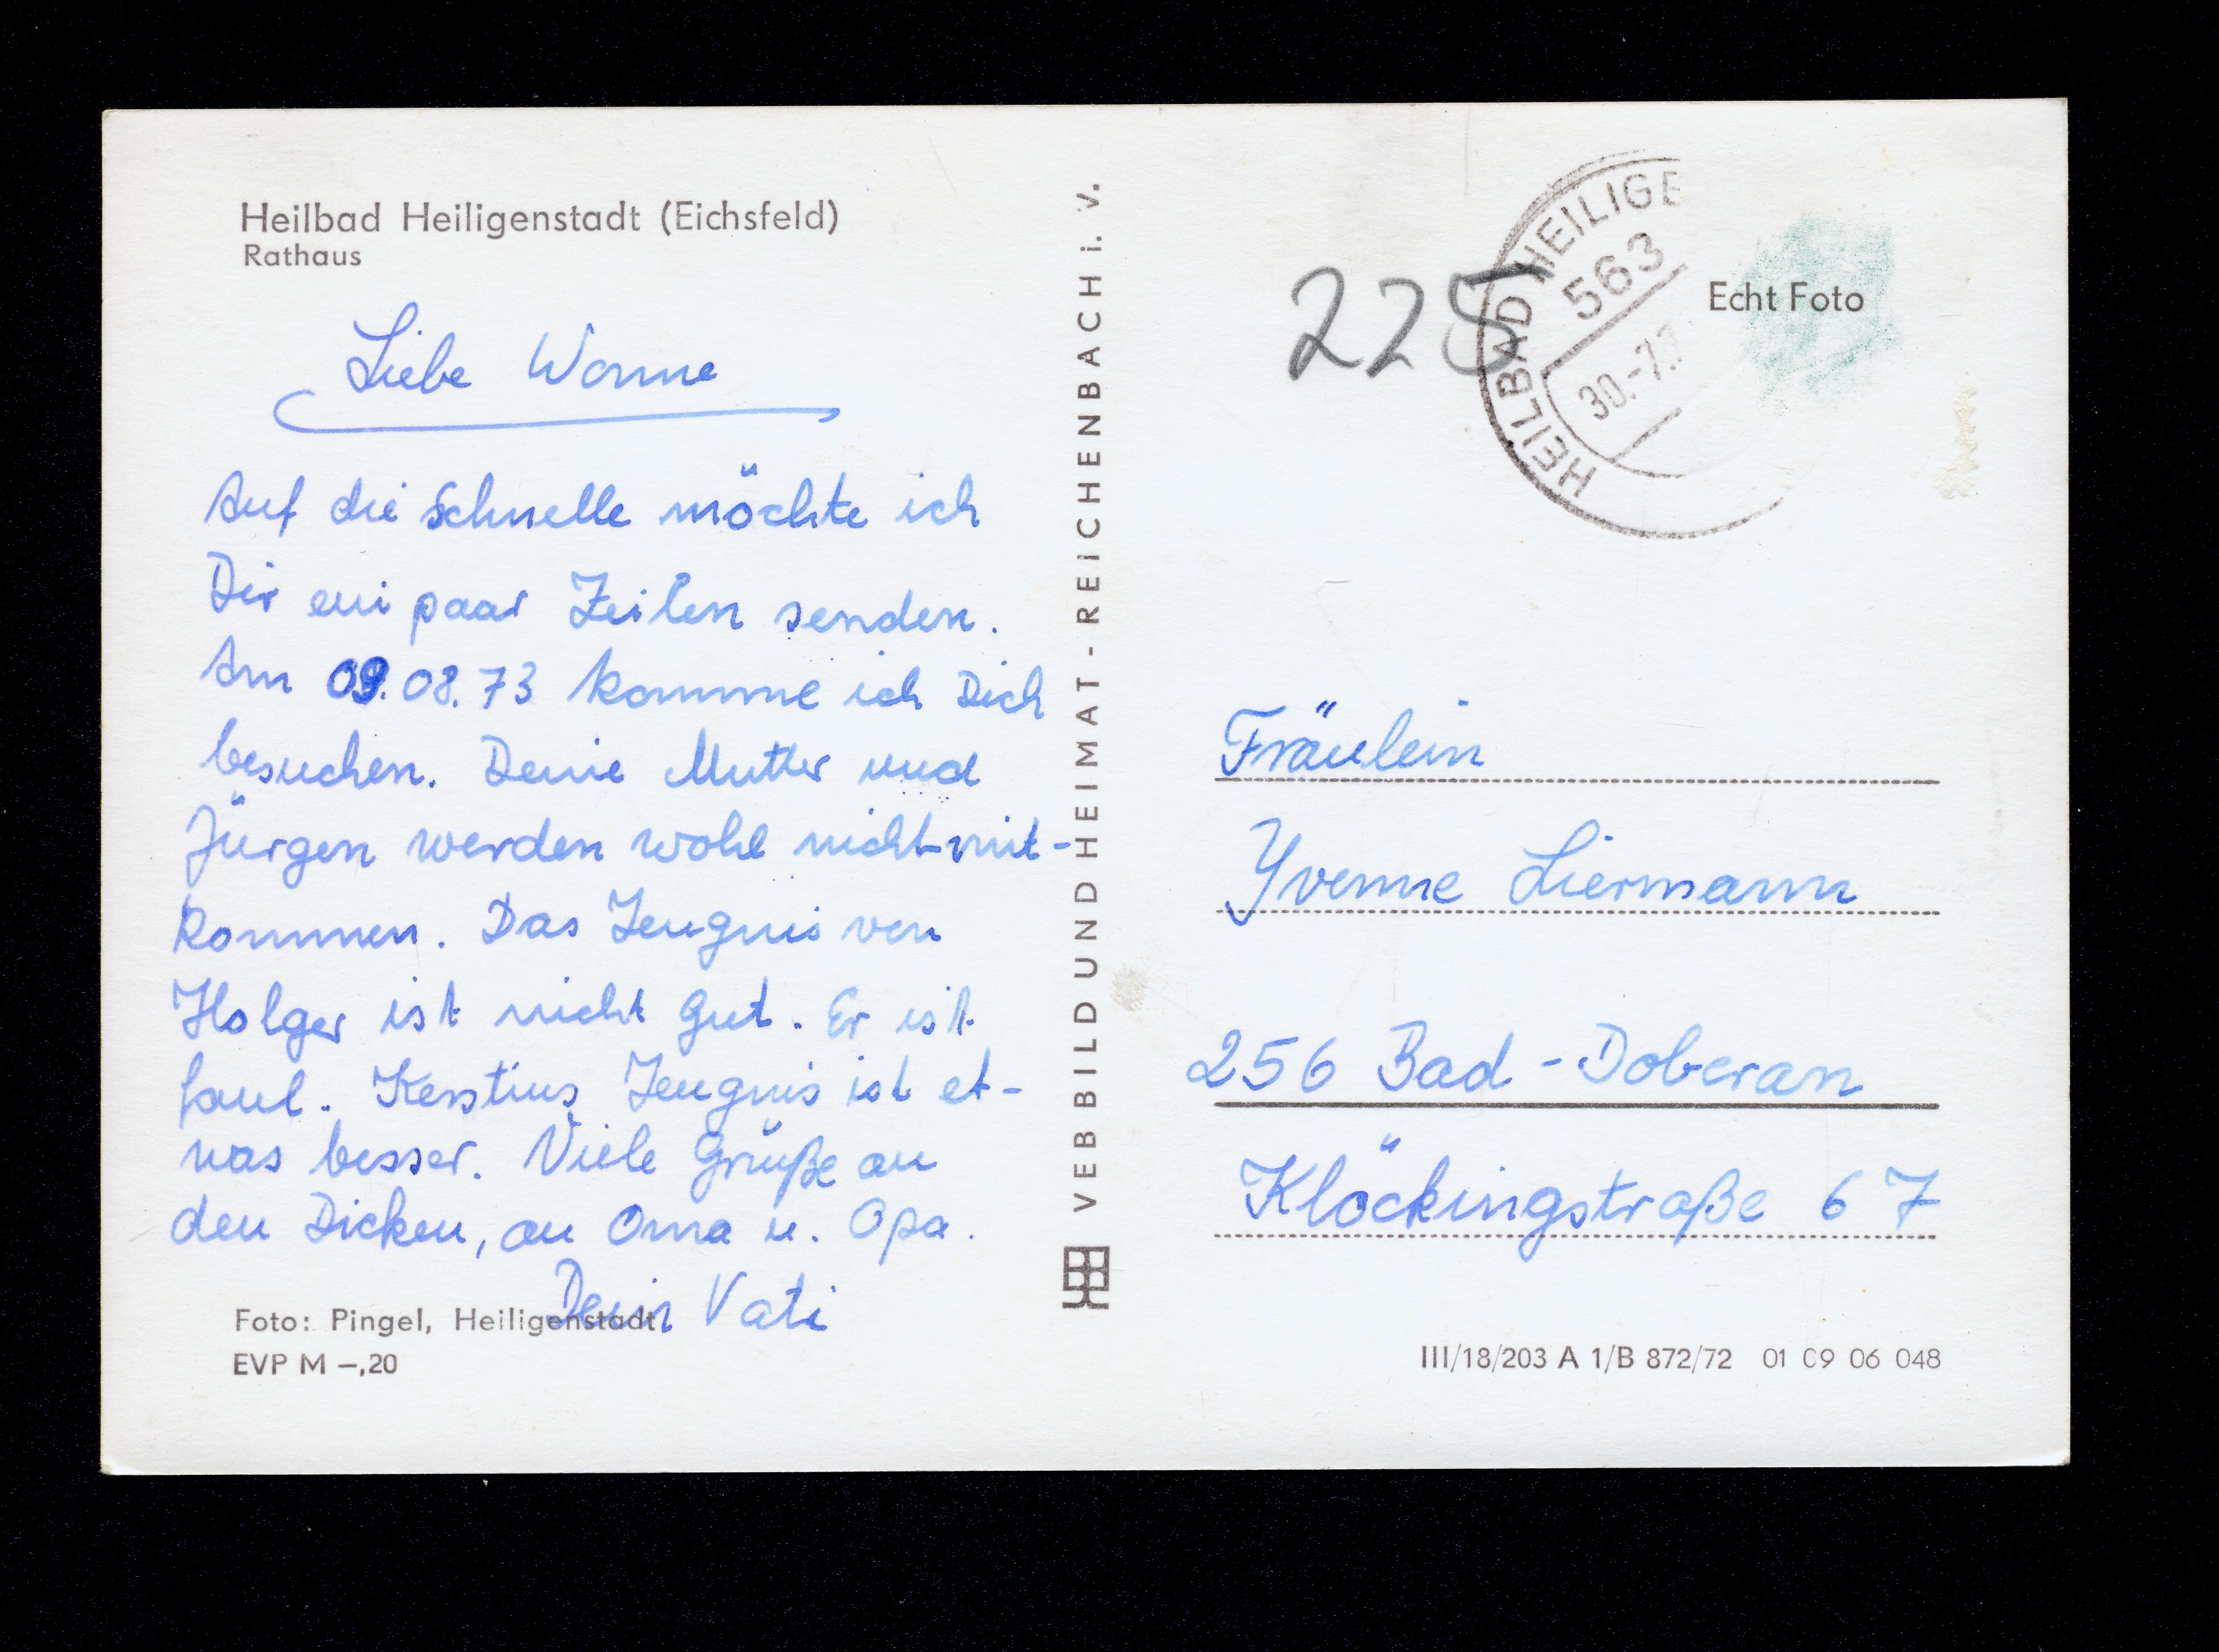 Heilbad Heiligenstadt (Eichsfeld)
Rathaus
Liebe Wonne
Auf die Schnelle möchte ich
Dir ein paar Zeilen senden.
Am 09.08.73 komme ich Dich
besuchen. Deine Mutter und
Jürgen werden wohl nicht mit-
kommen. Das Zeugnis von
Holger ist nicht gut. Er ist
faul. Kerstins Zeugnis ist et-
was besser. Viele Grüße an
den Dicken, an Oma u. Opa.
Dein Vati
Foto: Pingel, Heiligenstadt
EVP M –,20
VEB BILD UND HEIMAT - REICHENBACH i. V.
225
HEILBAD HEILIGE
563
30.-7.7
Echt Foto
Fräulein
Yvonne Liermann
256 Bad - Doberan
Klöckingstraße 67
III/18/203 A 1/B 872/72 01 09 06 048